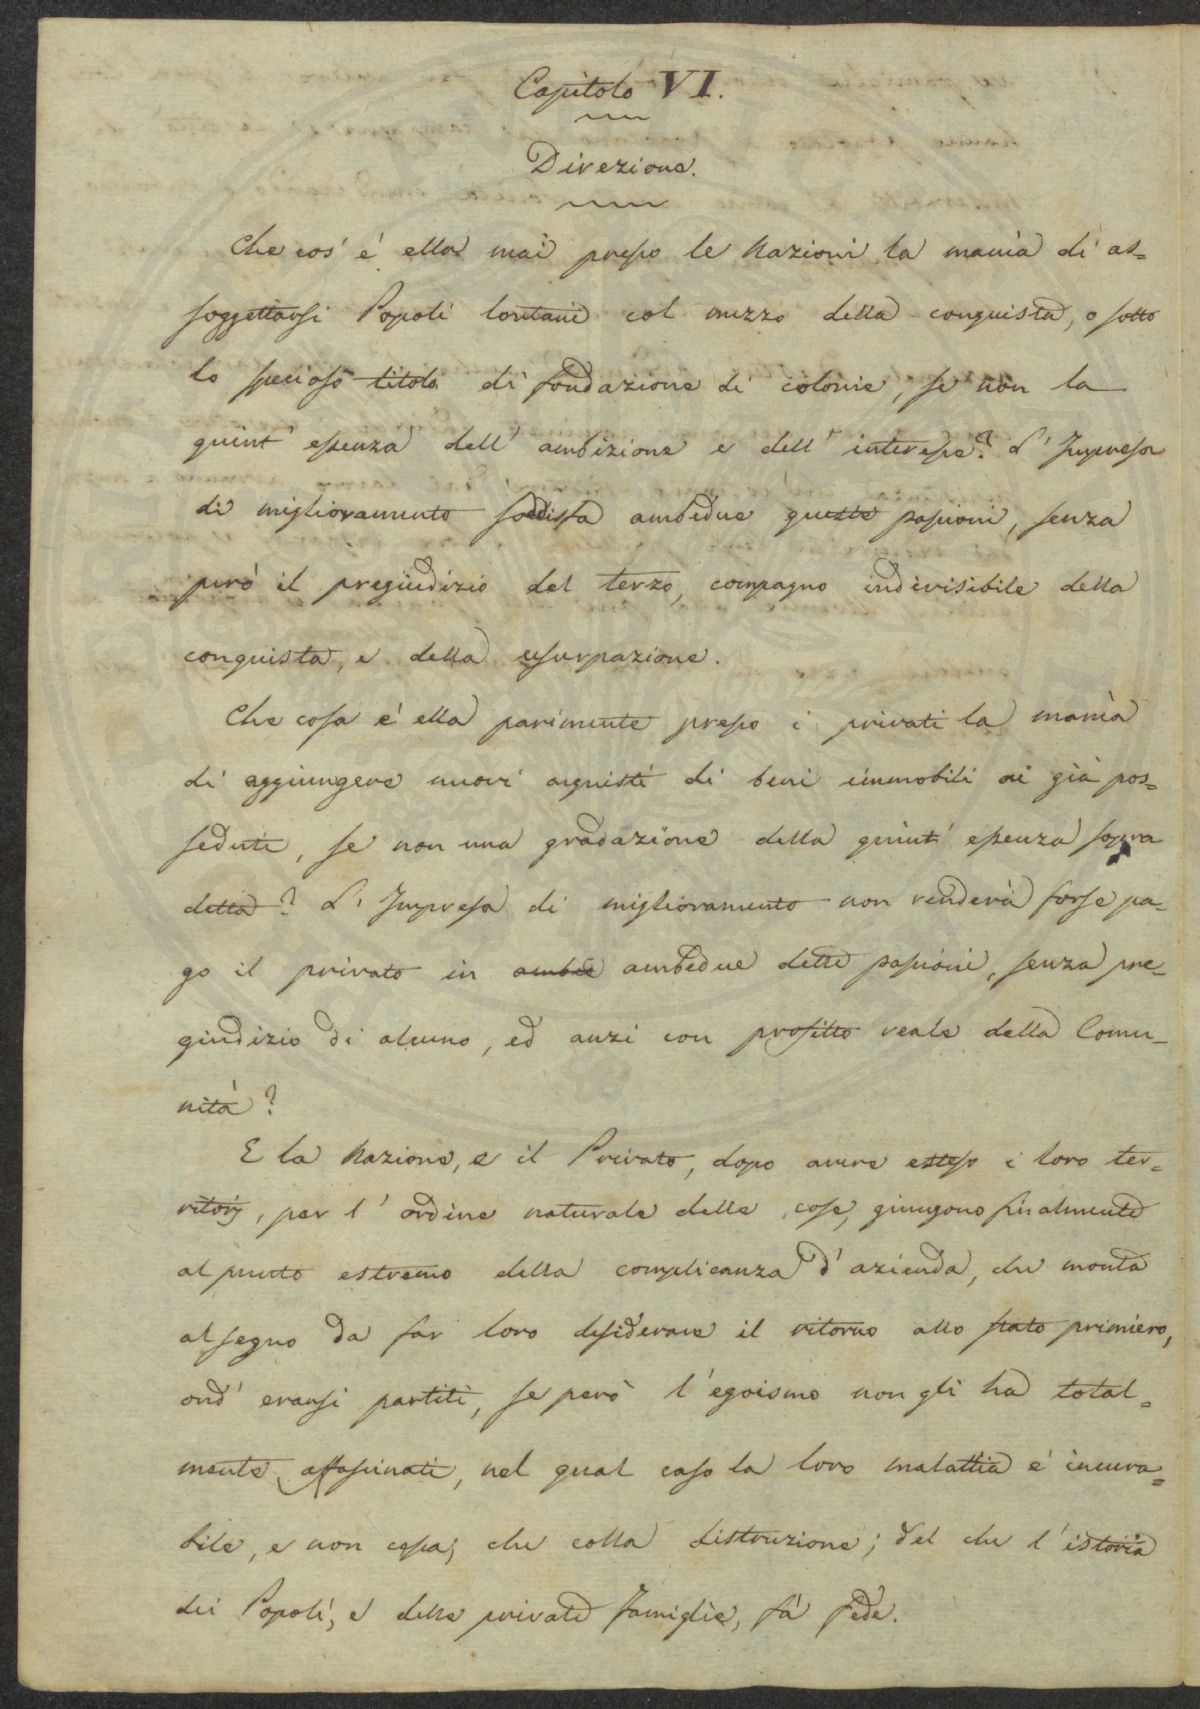 Capitolo VI.
Direzione.
Che cos' è ella mai presso le Nazioni la mania di as=
soggettarsi Popoli lontani col mezzo della conquista, o sotto
lo specioso titolo di fondazione di colonie, se non la
quint' essenza dell' ambizione e dell' interesse? L' Impresa
di miglioramento soddisfa ambedue queste passioni, senza
però il pregiudizio del terzo, compagno indivisibile della
conquista, e della usurpazione.
Che cosa è ella parimente presso i privati la manìa
di aggiungere nuovi acquisti di beni immobili ai già pos=
seduti, se non una gradazione della quint' essenza sopra
detta? L' Impresa di miglioramento non renderà forse pa=
go il privato in ambed ambedue dette passioni, senza pre=
giudizio di alcuno, ed anzi con profitto reale della Comu=
nità?
E la Nazione, e il Privato, dopo avere esteso i loro ter=
ritorj, per l' ordine naturale delle cose, giungono finalmente
al punto estremo della complicanza d' azienda, che monta
al segno da far loro desiderare il ritorno allo stato primiero,
ond' eransi partiti, se però l' egoismo non gli ha total=
mente affascinati, nel qual caso la loro malattia è incura=
bile, e non cessa, che colla distruzione; del che l' istoria
dei Popoli, e delle private famiglie, fà fede.